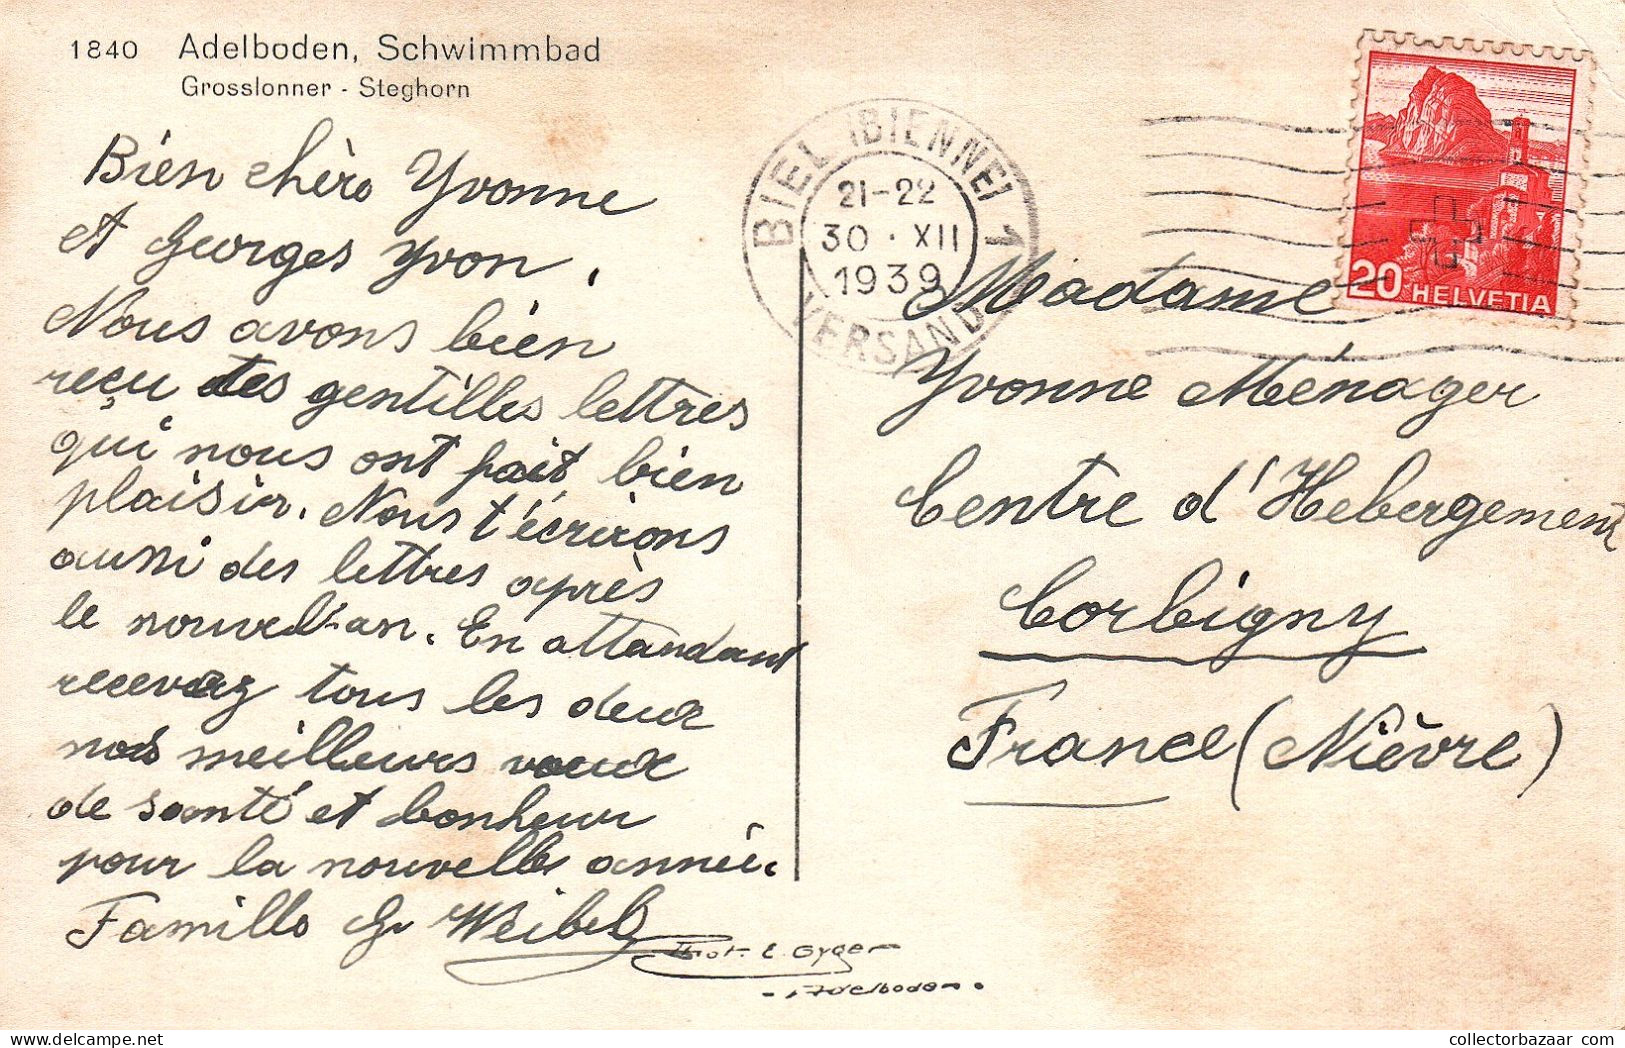 1840 Adelboden, Schwimmbad
Grosslonner - Steghorn
Bien chère Yvonne
et Georges Yvon.
Nous avons bien
reçu tes gentilles lettres
qui nous ont fait bien
plaisir. Nous t'écrirons
aussi des lettres après
le nouvel-an. En attendant
recevez tous les deux
nos meilleurs voeux
de santé et bonheur
pour la nouvelle année.
Famille G. Weibel
Phot. E. Gyger
Adelboden.
BIEL (BIENNE) 1
21-22
30.XII
1939
VERSAND
20 HELVETIA
Madame
Yvonne Ménager
Centre d'Hebergement
Corbigny
France (Nièvre)
collectorbazaar.com